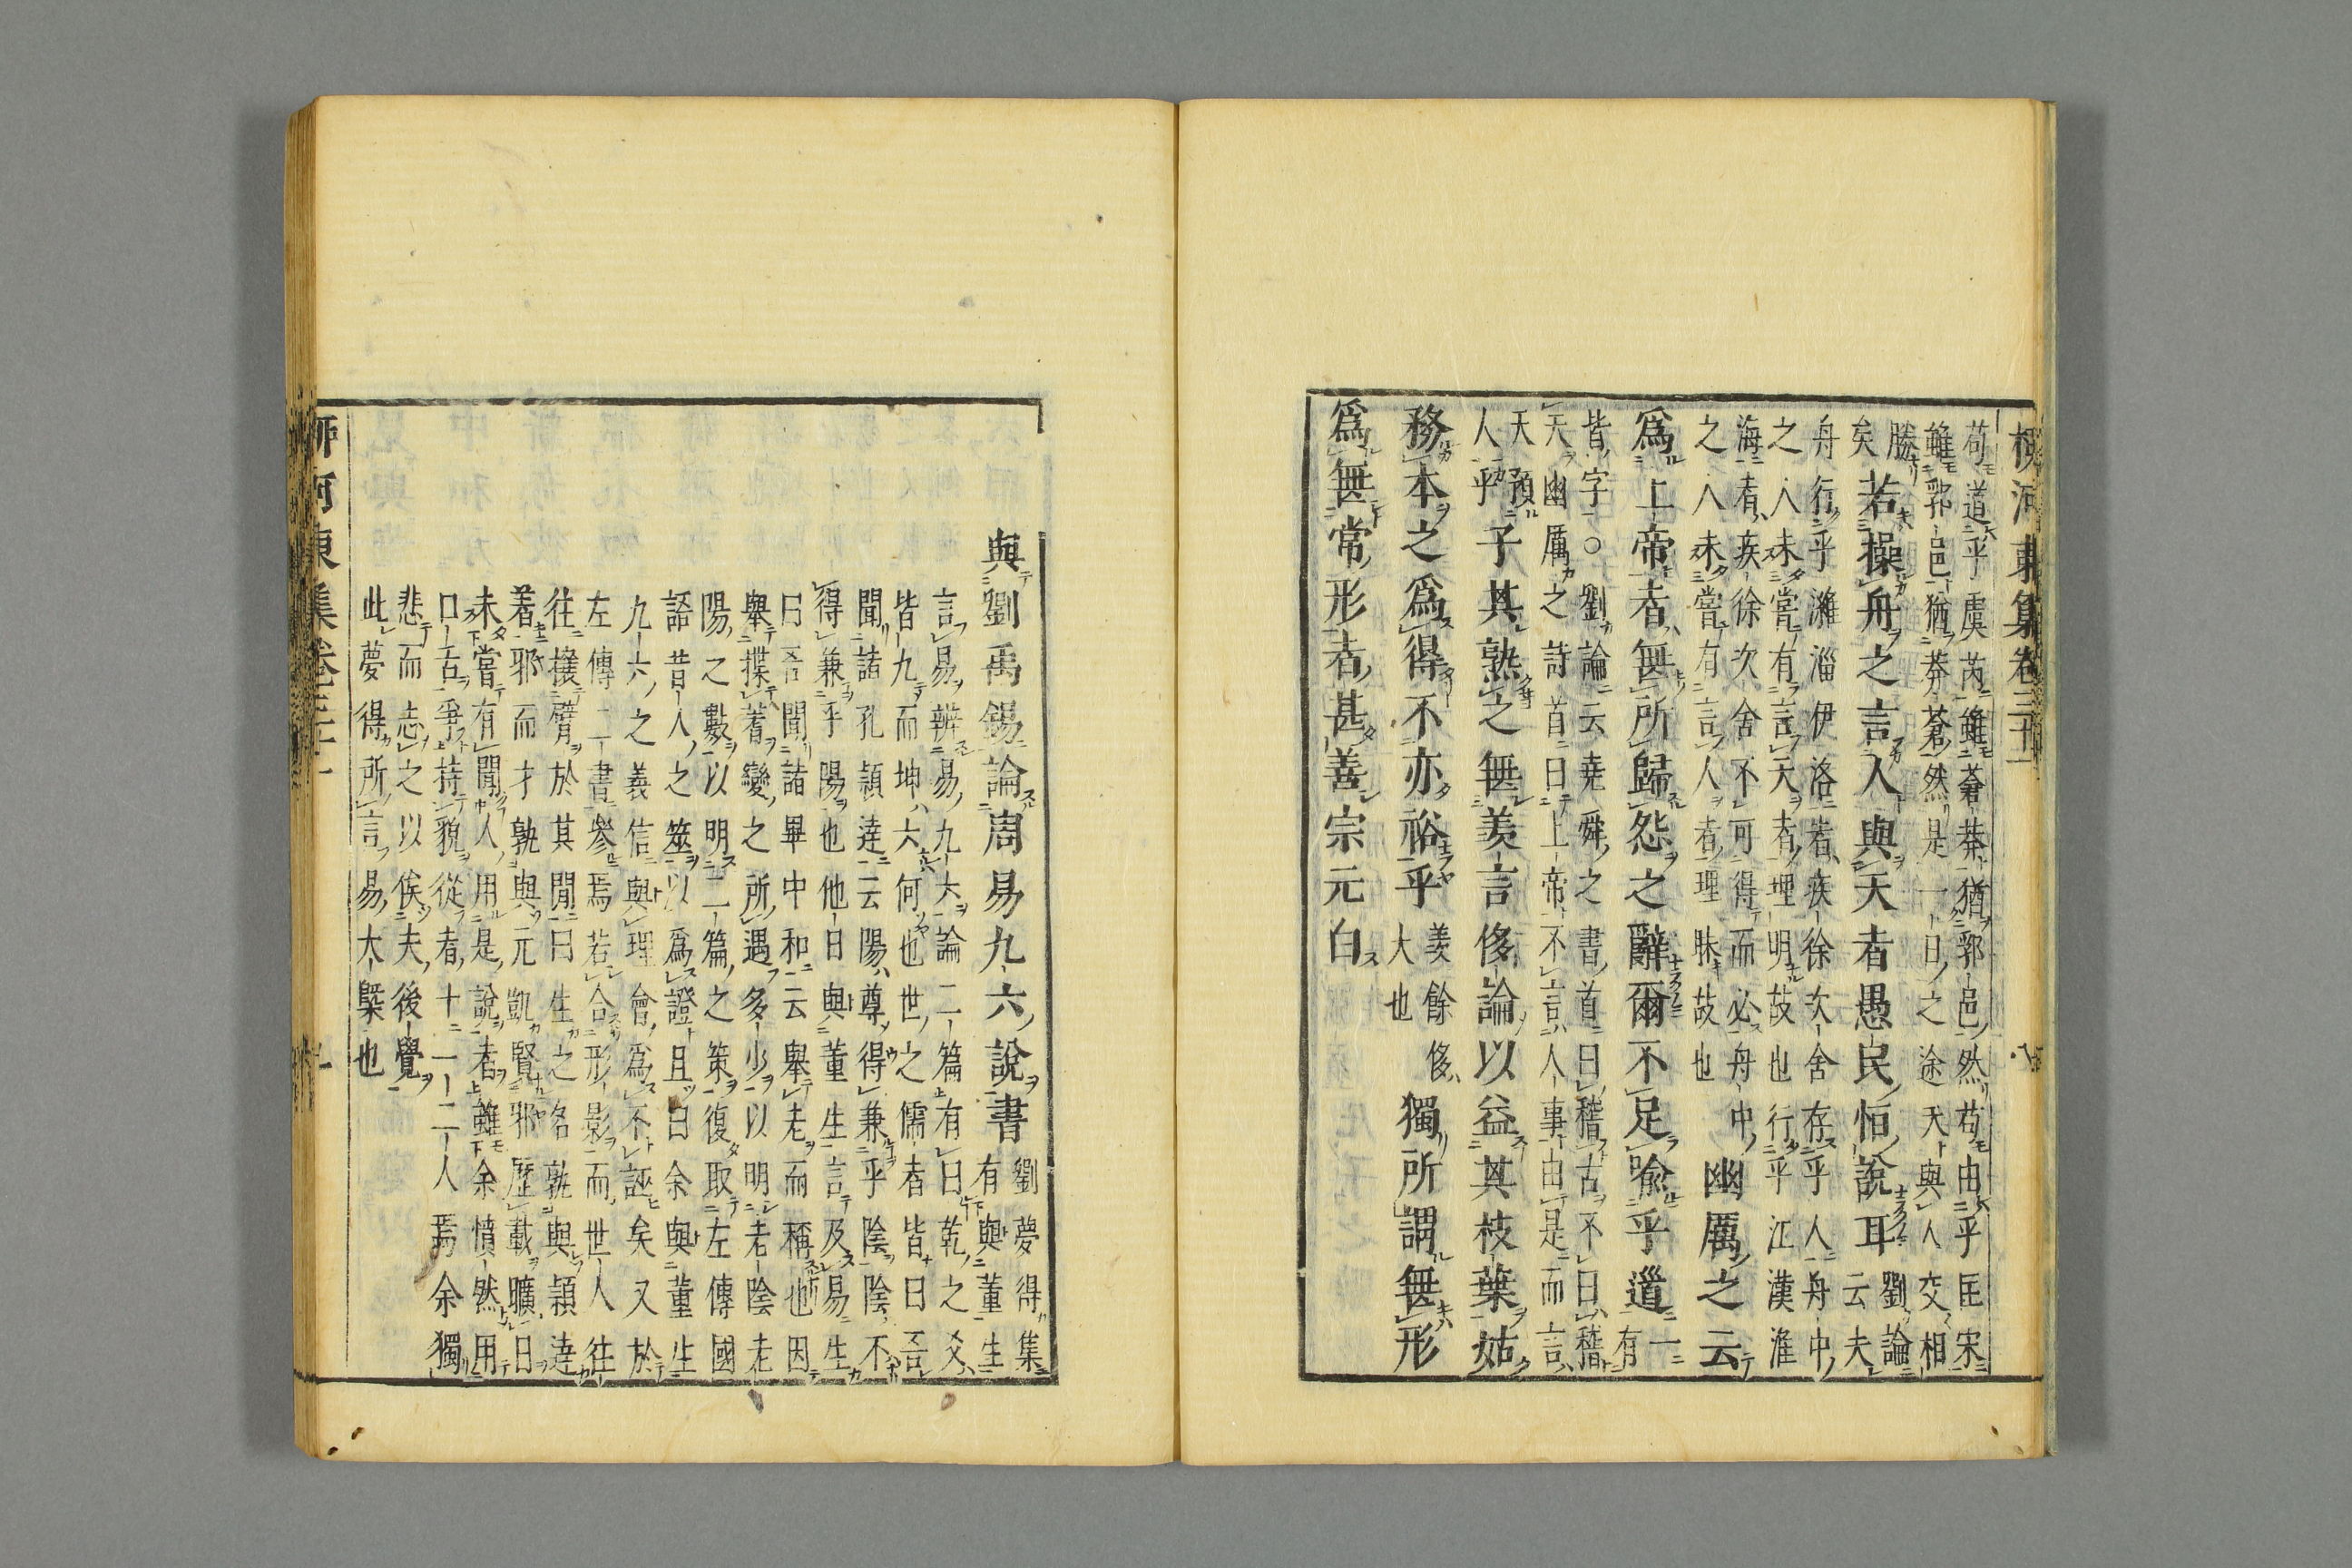 柳河東集卷三十一 八
苟道乎虞芮雖蒼莽猶郭邑然苟由乎匡宋
雖郭邑猶莽蒼然是一日之途天與人交相
勝
矣
若操舟之言人與天者愚民恒說耳
劉論
云夫
舟行乎濰淄伊洛者疾徐次舍存乎人舟中
之人未嘗有言天者理明故也行乎江漢淮
海者疾徐次舍不可得而必舟中
之人未嘗有言人者理昧故也
幽厲之云
爲上帝者無所歸怨之辭爾不足喻乎道
一
有
皆字○劉論云堯舜之書首曰稽古不曰稽
天幽厲之詩首曰上帝不言人事由是而言
天預
人乎
子其熟之無羨言侈論以益其枝葉姑
務本之爲得不亦裕乎
羨餘侈
大也
獨所謂無形
爲無常形者甚善宗元白
與劉禹錫論周易九六說書
劉夢得集
有與董生
言易辨易九六論二篇有曰乾之爻
皆九而坤六何也世之儒者皆曰吾
聞諸孔穎達云陽尊得兼乎陰陰不
得兼乎陽也他日與董生言及易生
曰吾聞諸畢中和云舉老而稱也因
舉揲蓍變之所遇多少以明老陰老
陽之數以明二篇之策復取左傳國
語昔人之筮以爲證且曰余與董生
九六之義信與理會爲不誣矣又於
左傳二書參焉若合形影而世人往
往攘臂於其間曰生之名孰與穎達
著邪而才孰與元凱賢邪歷載曠日
未嘗有聞人用是說者雖余憤然用
口舌爭特貌從者十一二人焉余獨
悲而志之以俟夫後覺
此夢得所言易大槩也
柳河東集卷三十一